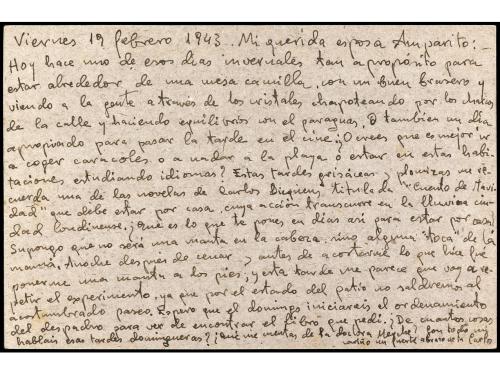 Viernes 19 febrero 1943. Mi querida esposa Amparito:—
Hoy hace uno de esos dias invernales tan apropósito para
estar alrededor de una mesa camilla, con un buen brasero y
viendo a la gente a través de los cristales chapoteando por los charcos
de la calle y haciendo equilibrios con el paraguas. O tambien un dia
apropiado para pasar la tarde en el cine. ¿O crees que es mejor ir
a coger caracoles o a nadar a la playa o estar en estas habi-
taciones estudiando idiomas? Estas tardes grisáceas y plomizas me re-
cuerda una de las novelas de Carlos Dickens, titulada "Cuento de Navi-
dad" que debe estar por casa, cuya acción transcurre en la lluviosa ciu-
dad londinense. ¿Que es lo que te pones en dias asi para estar por casa?
Supongo que no será una manta en la cabeza, sino alguna "toca" de la
mamá. Anoche después de cenar y antes de acostarme lo que hice fué
ponerme una manta a los pies, y esta tarde me parece que voy a re-
petir el experimento, ya que por el estado del patio no saldremos al
acostumbrado paseo. Espero que el domingo iniciareis el ordenamiento
del despacho para ver de encontrar el libro que pedi. ¿De cuantas cosas
hablais esas tardes domingueras? ¿Qué me cuentas de la doctora Meyche? Con todo mi
cariño un fuerte abrazo de tu Carlos